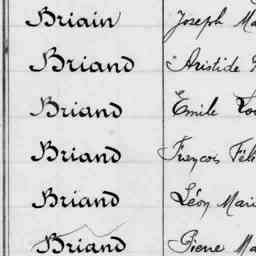 Briain Joseph Ma
Briand Aristide
Briand Emile Lou
Briand François Féli
Briand Léon Mari
Briand Pierre Ma